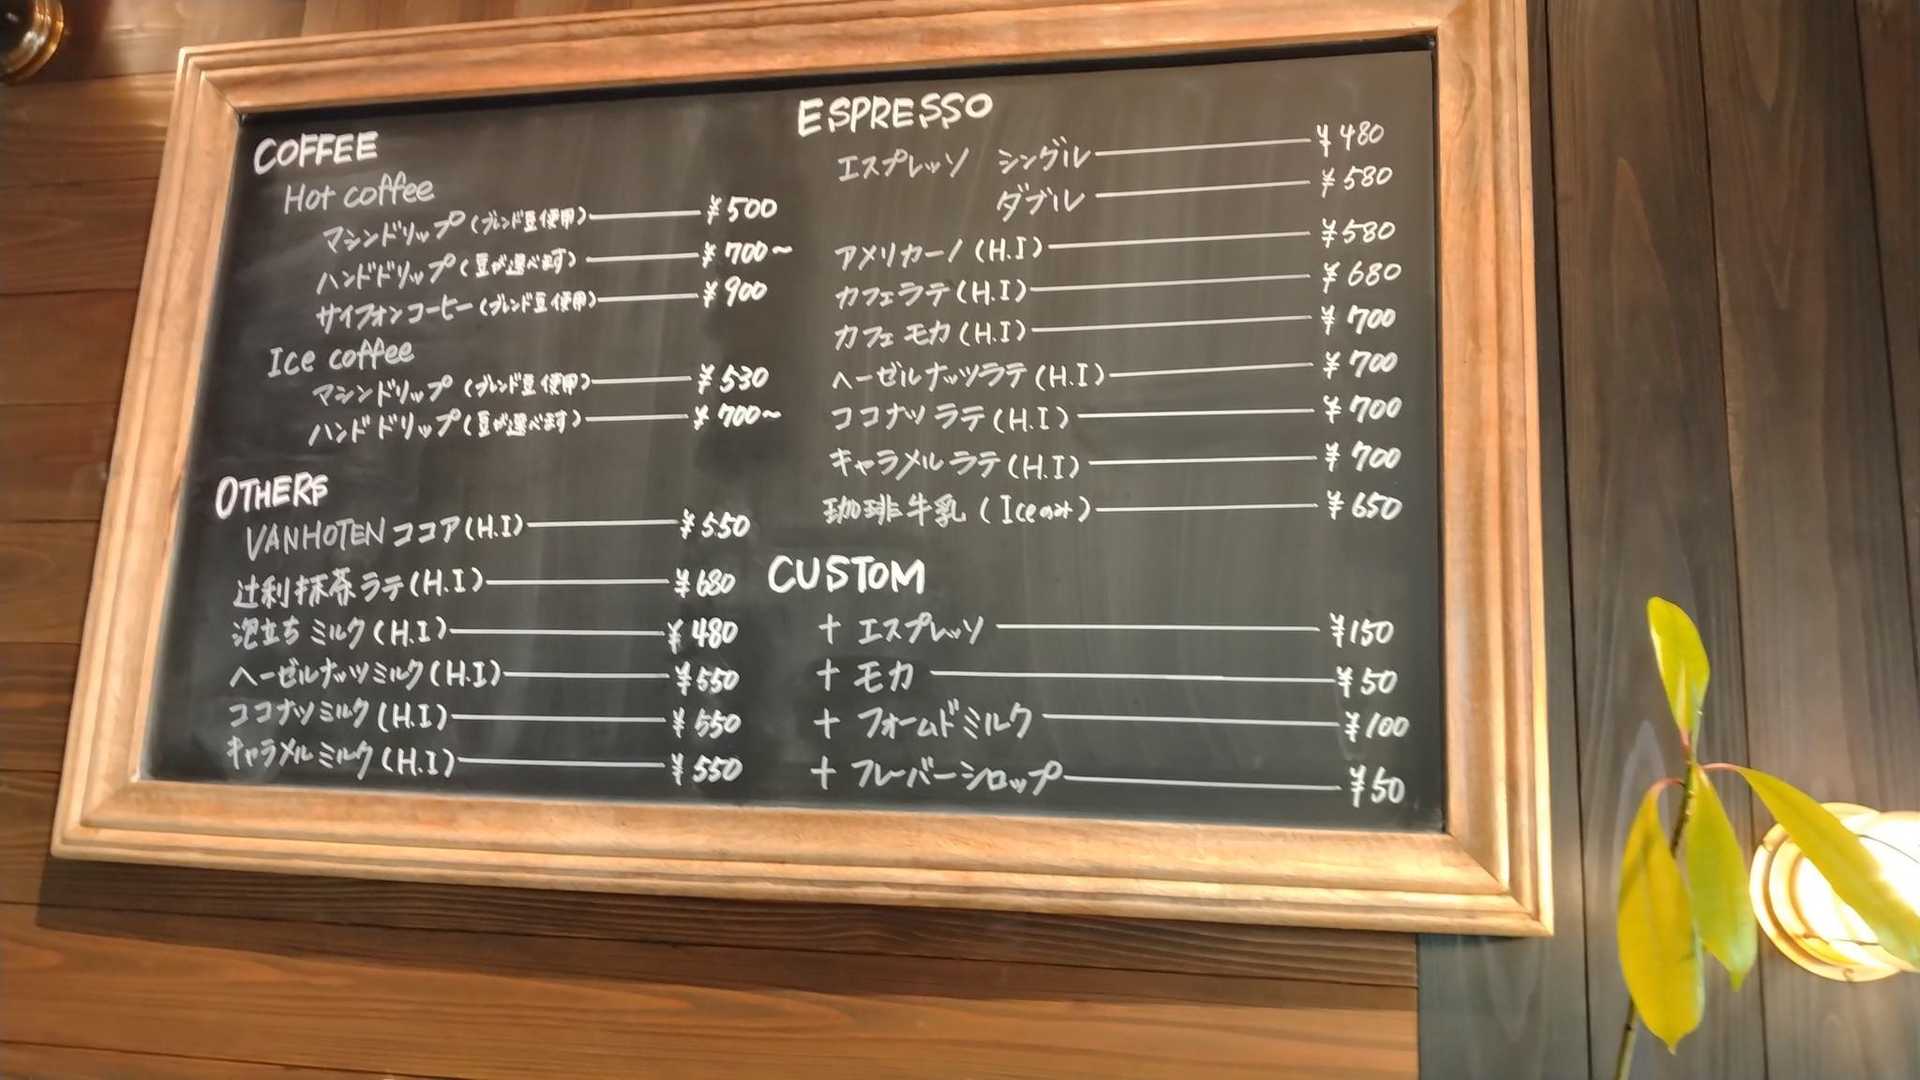 COFFEE
Hot coffee
マシンドリップ(ブレンド豆使用) ¥500
ハンドドリップ(豆が選べます) ¥700〜
サイフォンコーヒー(ブレンド豆使用) ¥900
Ice coffee
マシンドリップ(ブレンド豆使用) ¥530
ハンドドリップ(豆が選べます) ¥700〜
OTHERS
VANHOTENココア(H.I) ¥550
辻利抹茶ラテ(H.I) ¥680
泡立ちミルク(H.I) ¥480
ヘーゼルナッツミルク(H.I) ¥550
ココナツミルク(H.I) ¥550
キャラメルミルク(H.I) ¥550
ESPRESSO
エスプレッソ シングル ¥480
ダブル ¥580
アメリカーノ(H.I) ¥580
カフェラテ(H.I) ¥680
カフェモカ(H.I) ¥700
ヘーゼルナッツラテ(H.I) ¥700
ココナツラテ(H.I) ¥700
キャラメルラテ(H.I) ¥700
珈琲牛乳(Iceのみ) ¥650
CUSTOM
+ エスプレッソ ¥150
+ モカ ¥50
+ フォームドミルク ¥100
+ フレーバーシロップ ¥50